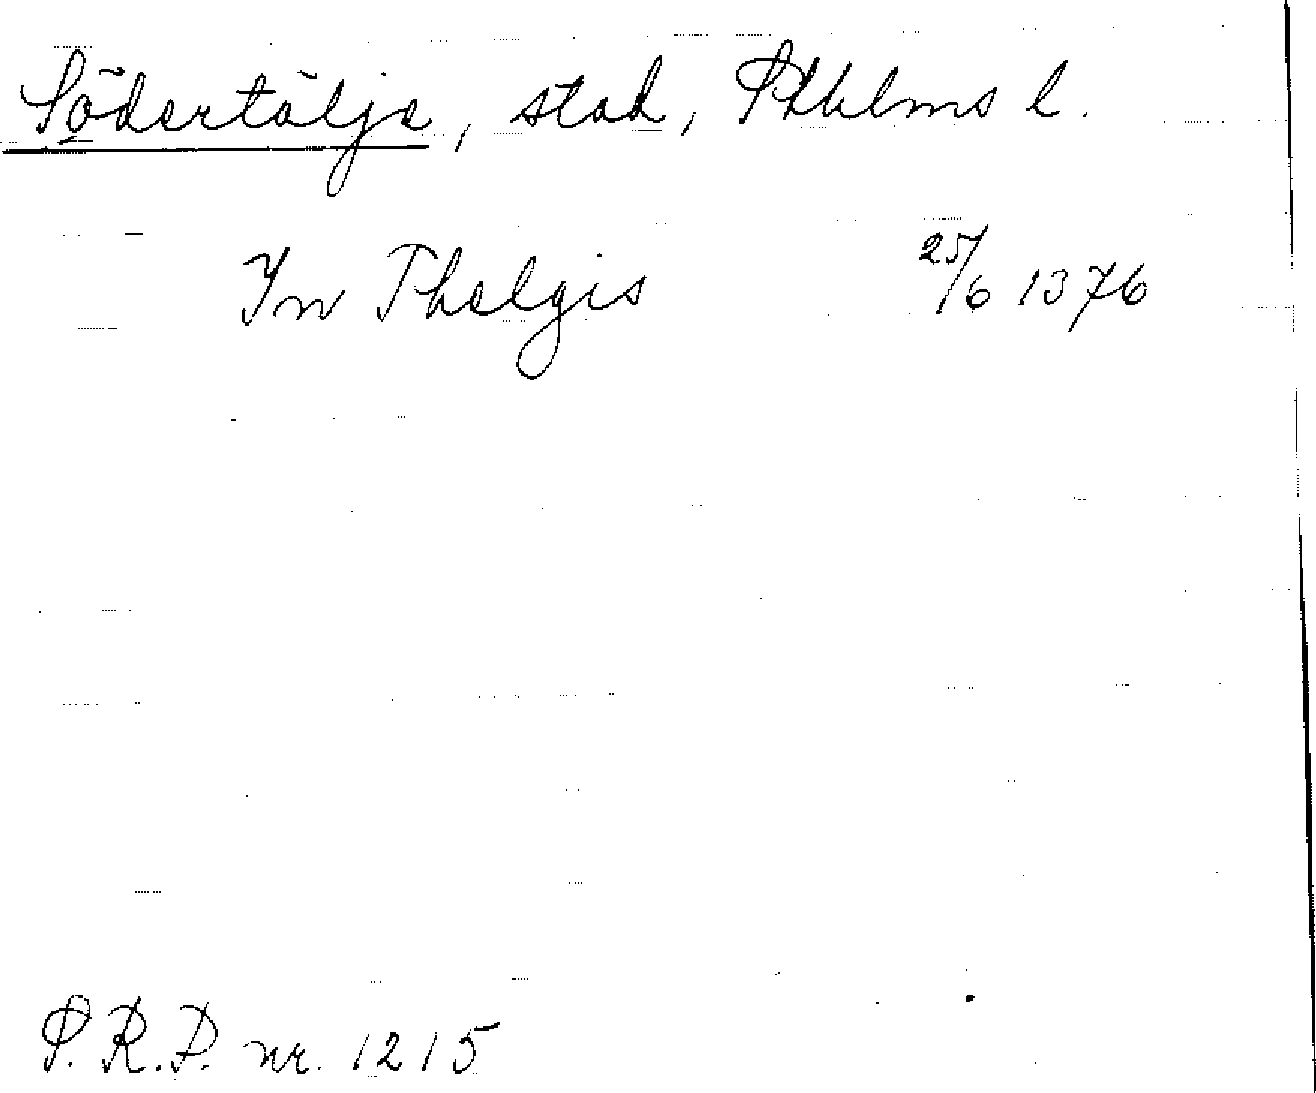 Södertälje, stad, Sthlms l.
In Thelgis 25/6 1376
S.R.P. nr. 1215